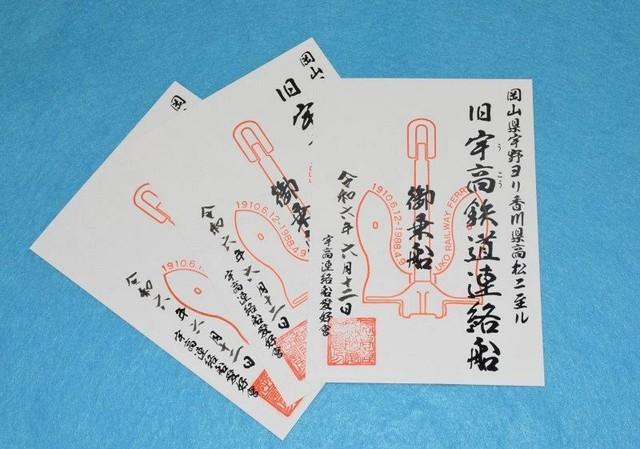 岡山県宇野ヨリ香川県高松ニ至ル
うこう
旧宇高鉄道連絡船
御乗船
1910.6.12-1988.4.9
UKO RAILWAY FERRY
令和六年六月十二日
宇高連絡船愛好会
岡山
旧宇
御乗船
1910.6.12-1988.4.9
令和六年六月十二日
宇高連絡船愛好会
岡
1910.6.1
令和六年六月十二日
宇高連絡船愛好会